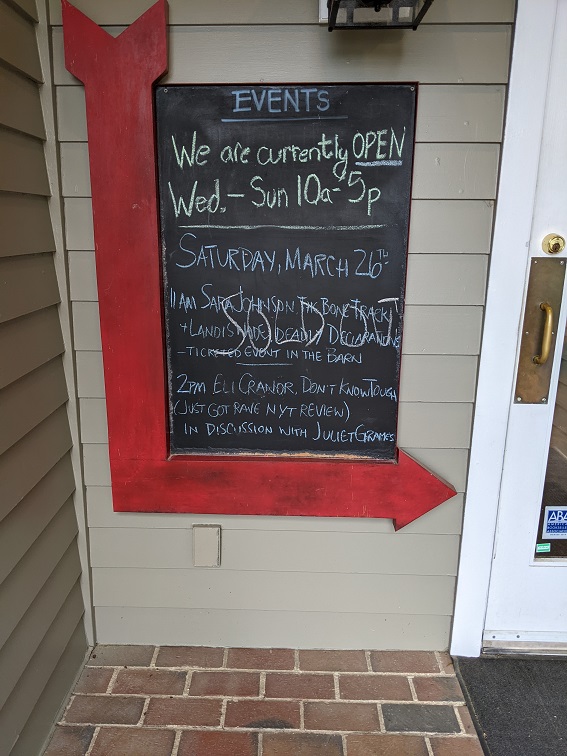 EVENTS
We are currently OPEN
Wed.-Sun 10a-5p
SATURDAY, MARCH 26TH
11AM SARA JOHNSON, THE BONE TRACK
SOLD OUT
+ LANDIS WADE, DEADLY DECLARATIONS
-TICKETED EVENT IN THE BARN
2PM ELI CRANOR, DON'T KNOW TOUGH
(JUST GOT RAVE NYT REVIEW)
IN DISCUSSION WITH JULIET GRAMES
ABA